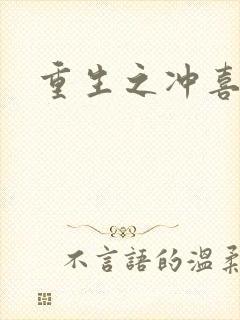 重生之冲喜
不言語的温柔